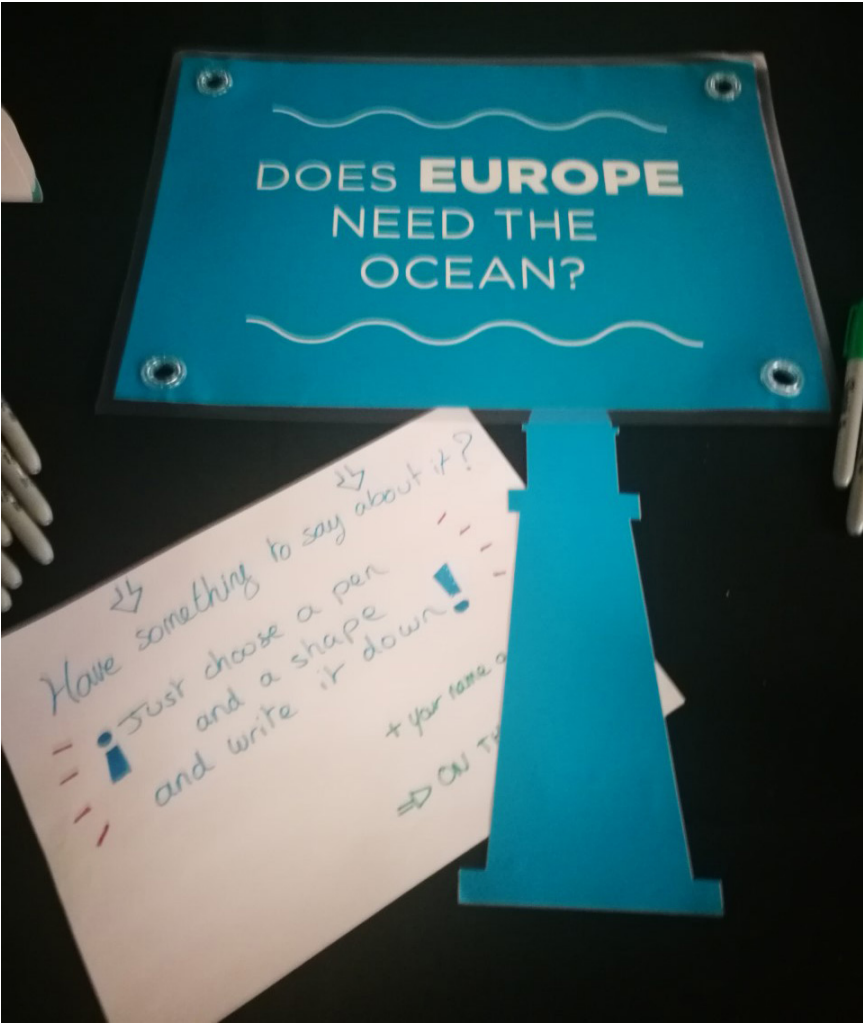 DOES EUROPE
NEED THE
OCEAN?
Have something to say about it?
¡Just choose a pen
and a shape
and write it down!
+ your name
⇒ ON